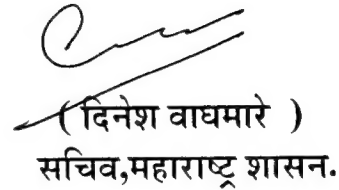 ( दिनेश वाघमारे )
सचिव,महाराष्ट्र शासन.